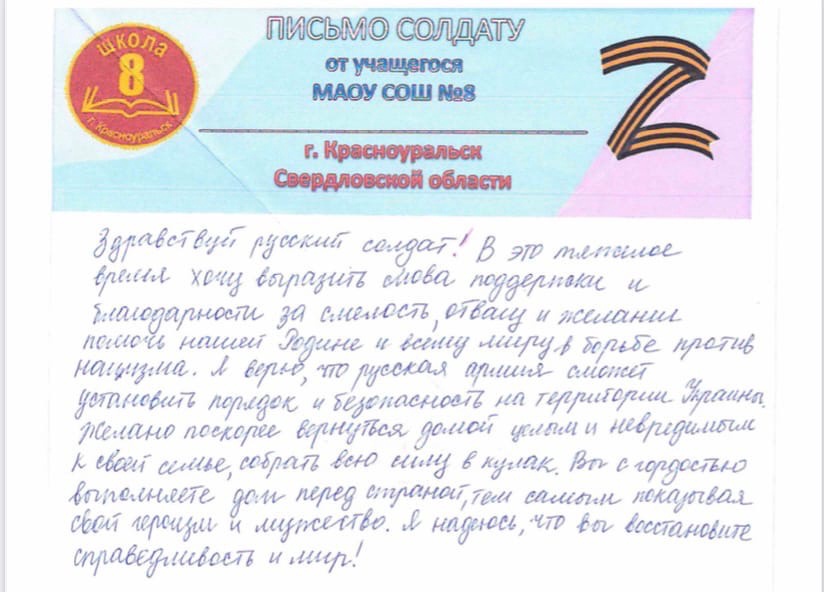 ШКОЛА
8
г. Красноуральск
ПИСЬМО СОЛДАТУ
от учащегося
МАОУ СОШ №8
г. Красноуральск
Свердловской области
Здравствуй русский солдат! В это тяжелое
время хочу выразить слова поддержки и
благодарности за смелость, отвагу и желание
помочь нашей Родине и всему миру в борьбе против
нацизма. Я верю, что русская армия сможет
установить порядок и безопасность на территории Украины.
Желаю поскорее вернуться домой целым и невредимым
к своей семье, собрать всю силу в кулак. Вы с гордостью
выполняете долг перед страной, тем самым показывая
свой героизм и мужество. Я надеюсь, что вы восстановите
справедливость и мир!